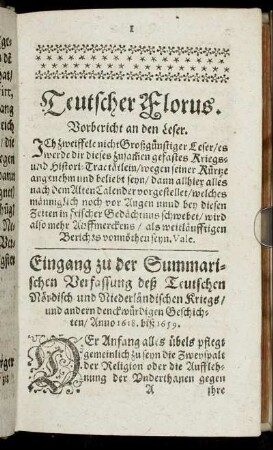 1
Teutscher Florus.
Vorbericht an den Leser.
JCh zweiffele nicht Großgünstiger Leser/es
werde dir dieses zusamen gefastes Kriegs-
und Histori-Tractätlein/wegen seiner Kürtze
angenehm und beliebt seyn/dann allhier alles
nach dem Alten Calender vorgestellet/welches
männiglich noch vor Augen unnd bey diesen
Zeiten in frischer Gedächtnus schwebet/wird
also mehr Auffmerckens/als weitläufftigen
Berichts vonnöthen seyn. Vale.
Eingang zu der Summari-
schen Verfassung deß Teutschen
Nördisch und Niederländischen Kriegs/
und andern denckwürdigen Geschich-
ten/Anno 1618. biß 1659.
DEr Anfang alles übels pflegt
gemeinlich zu seyn die Zweyspalt
der Religion oder die Aufflëh-
nung der Vnderthanen gegen
A ihre